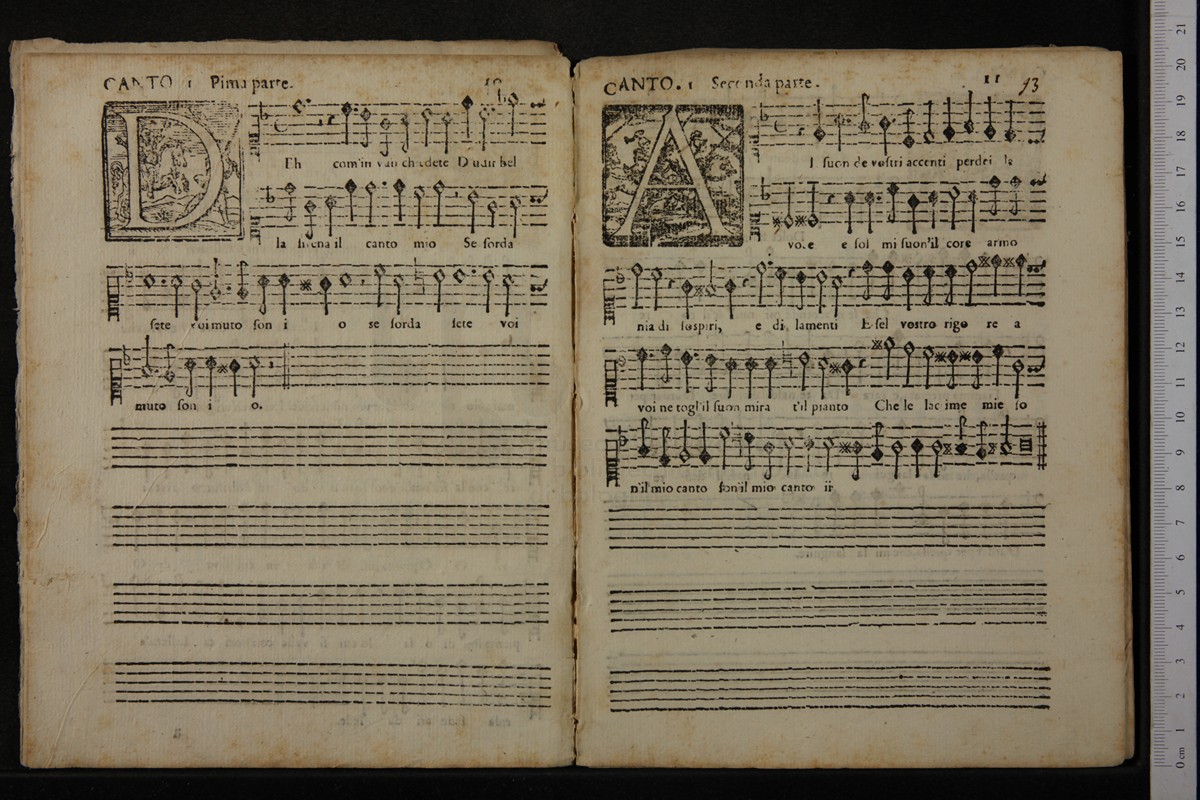 CANTO 1 Pima parte. 10
D Eh com'in van chiedete D'udir bel
la sirena il canto mio Se sorda
sete voi muto son i o se sorda sete voi
muto son i o.
CANTO. 1 Seconda parte. 11 93
A I suon de vostri accenti perdei la
voce e sol mi suon'il core armo
nia di sospiri, e di lamenti E sel vostro rigo re a
voi ne togl'il suon mira t'il pianto Che le lacrime mie so
n'il mio canto son'il mio canto ii